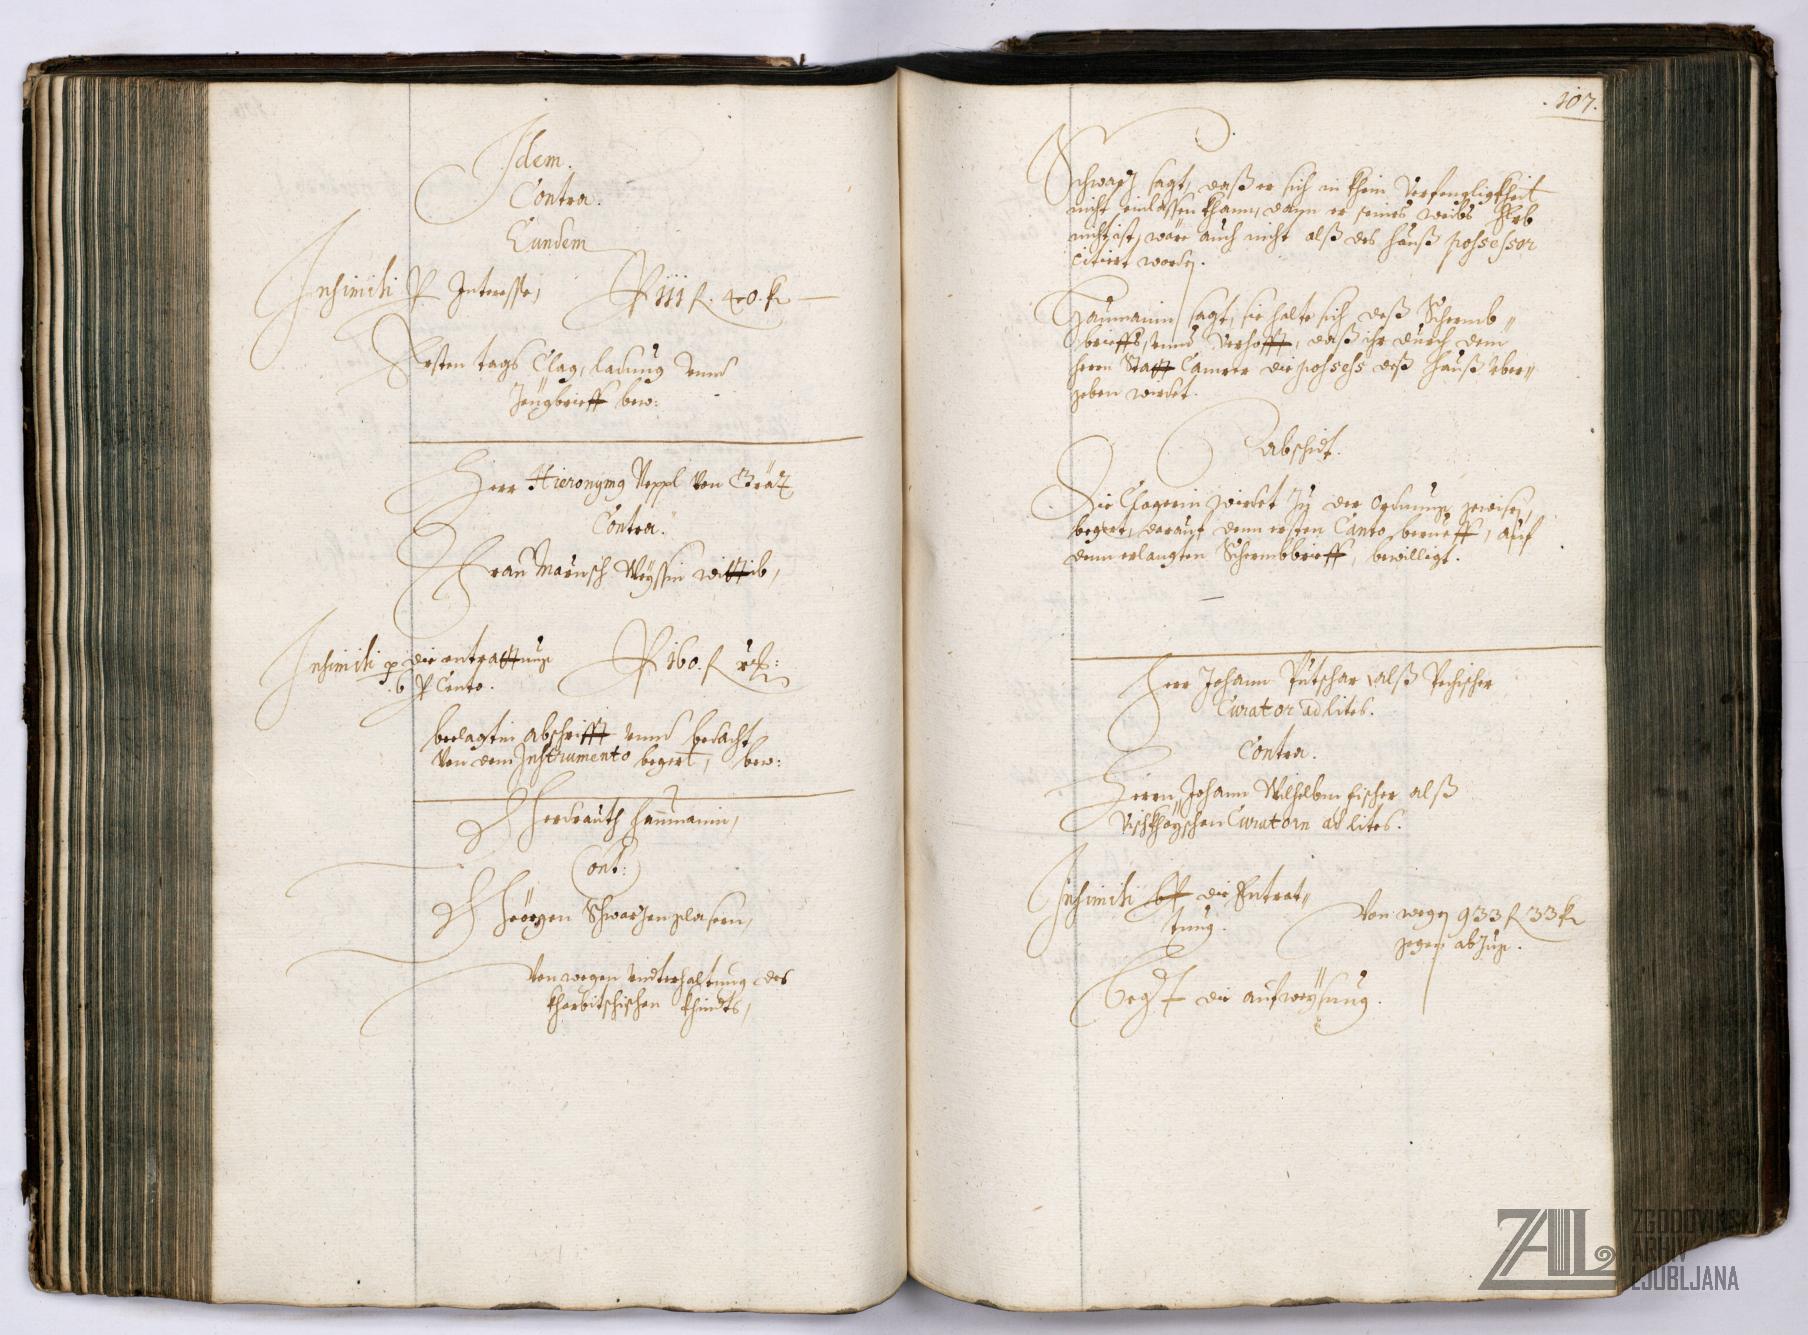 Idem.
Contra.
Eundem
Insimili P Interesse, P 111 f. 40. k
Ersten tags Clag, ladung vnnd
Zeugbrieff bew:
Herr Hieronymg Veppl von Gräz
Contra.
Frau Marusch Weyssin wittib,
Insimili p die entrattung P 160. f
6 P Cento.
beclagtin abschrifft vnnd bedacht
von dem Instrumento begert, bew:
Gerdrauth Haumanin,
Cont:
Geörgen Schwarzen glasern,
Von wegen vndterhaltung des
kharbitschischen khindts,
.107.
Schwarz sagt, daß er sich in khein
nicht einlassen khann, dann er seines weibs Erb
nicht ist, wäre auch nicht alß des hauß possessor
citiert worden.
Haumanin sagt, sie halte sich deß Schermb„
brieffs, vnnd verhofft, daß ihr durch dem
herrn Statt Camrer die possess deß Hauß vber„
geben wirdet.
Abschidt.
Die Clagerin wirdet Zu der Ordnung gewisen,
begert, darauf denn ersten Canto berueff, auf
denn erlangten Schermbbrieff, bewilligt.
Herr Johann Putschar alß
Curator ad lites.
Contra.
Herrn Johann Wilhelbm fischer alß
Curatorn ad lites.
Insimili die Entrat„
tung. Von wegen 933 f 33 k
gegen abZug.
Begt die aufweysung.
ZAL ZGODOVINSKI
ARHIV
LJUBLJANA